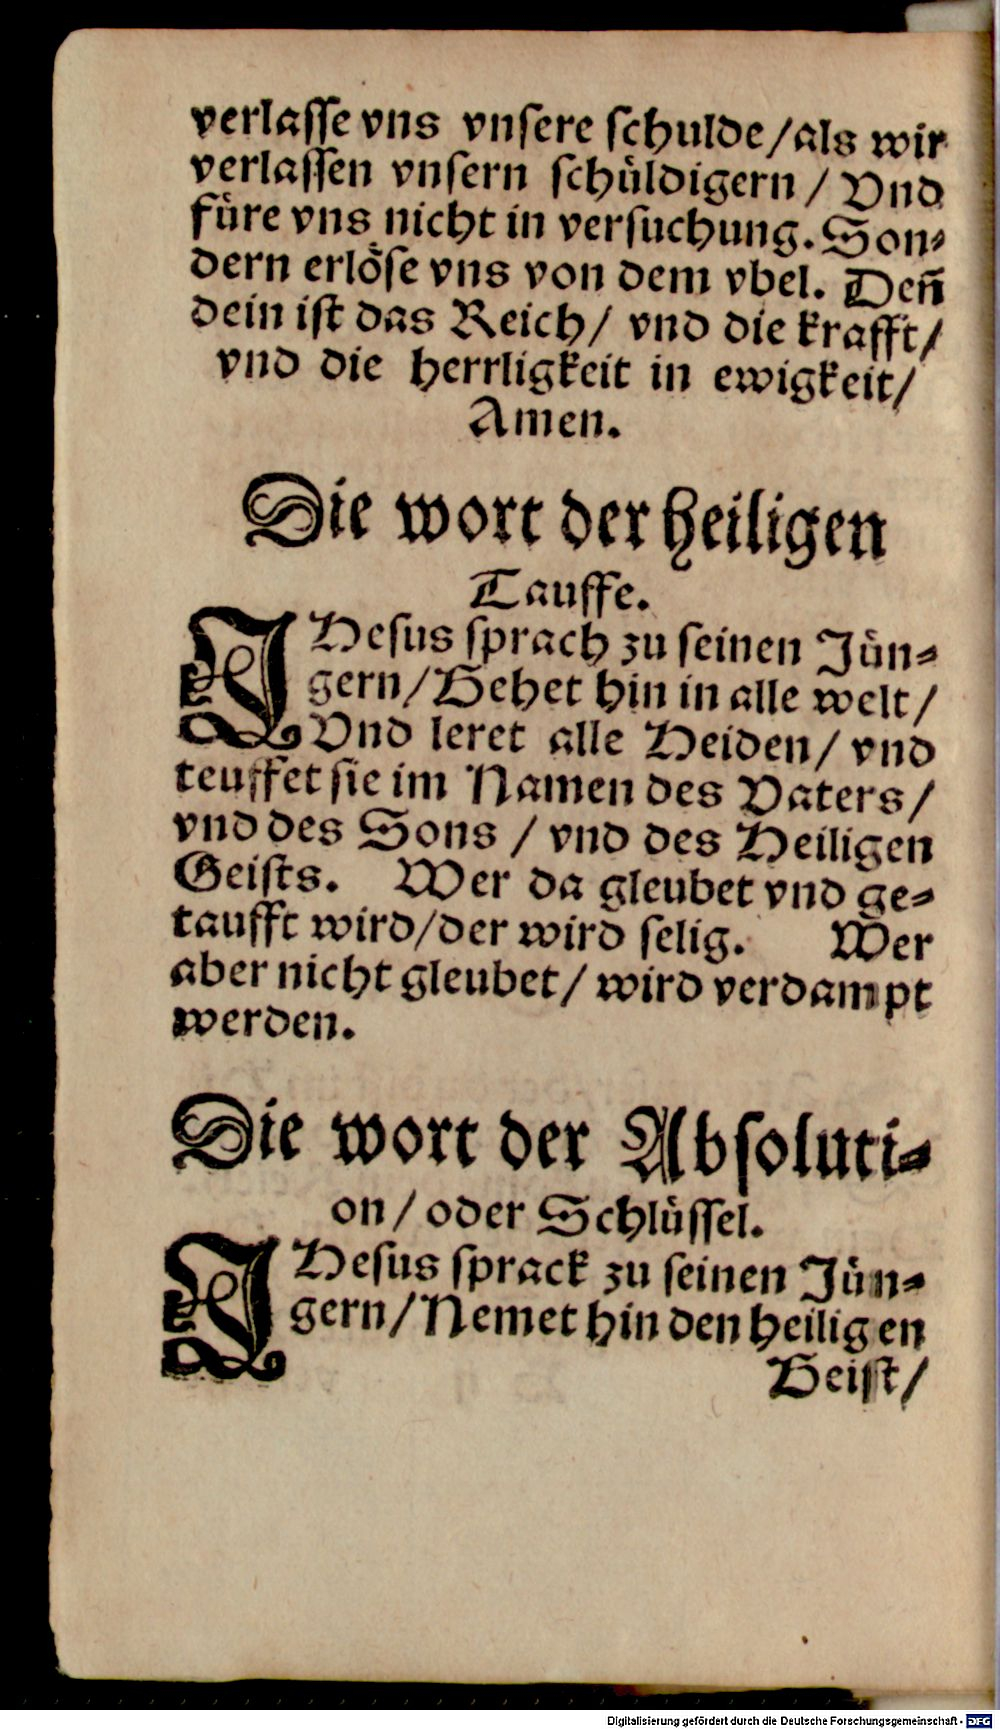 verlasse vns vnsere schulde/als wir
verlassen vnsern schüldigern / Vnd
füre vns nicht in versuchung. Son⸗
dern erlöse vns von dem vbel. Deñ
dein ist das Reich/ vnd die krafft/
vnd die herrligkeit in ewigkeit/
Amen.
Die wort der heiligen
Tauffe.
JHesus sprach zu seinen Jün⸗
gern/Gehet hin in alle welt/
Vnd leret alle Heiden/ vnd
teuffet sie im Namen des Vaters/
vnd des Sons / vnd des Heiligen
Geists. Wer da gleubet vnd ge⸗
taufft wird/der wird selig. Wer
aber nicht gleubet/ wird verdampt
werden.
Die wort der Absoluti⸗
on/ oder Schlüssel.
JHesus sprack zu seinen Jün⸗
gern/Nemet hin den heiligen
Geist/
Digitalisierung gefördert durch die Deutsche Forschungsgemeinschaft - DFG